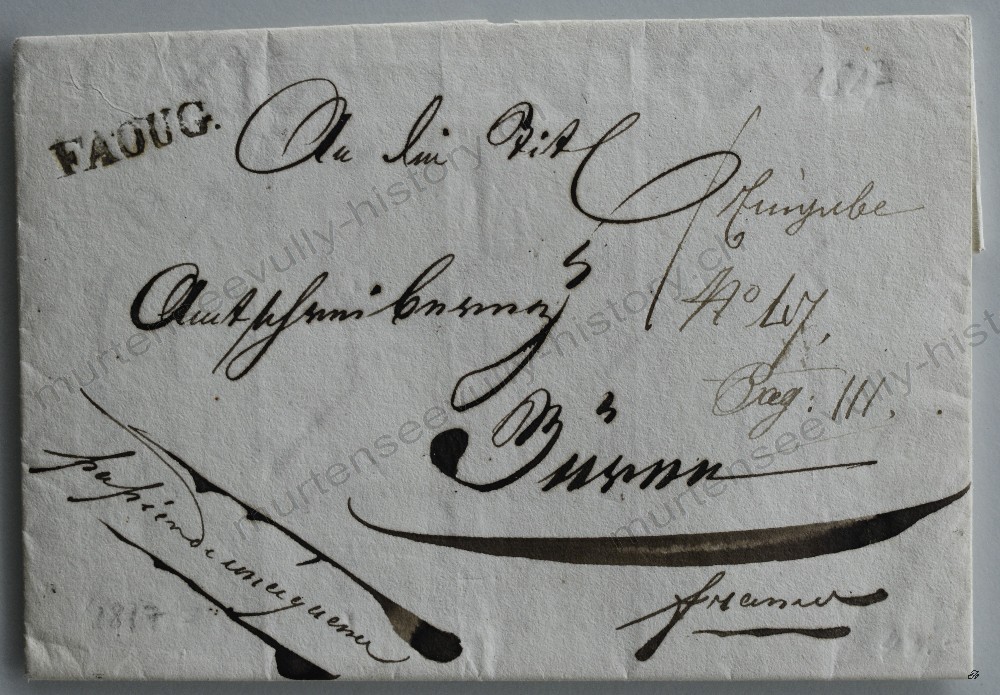 FAOUG.
1817
An die Tit
Amtschreiberey
Büren
Eingabe
No 57.
Pag: 111.
franco
1817
murtensee-vully-history.ch